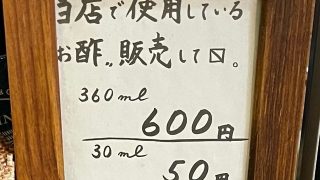 当店で使用している
お酢〟販売して〼。
360ml
600円
30ml
50円